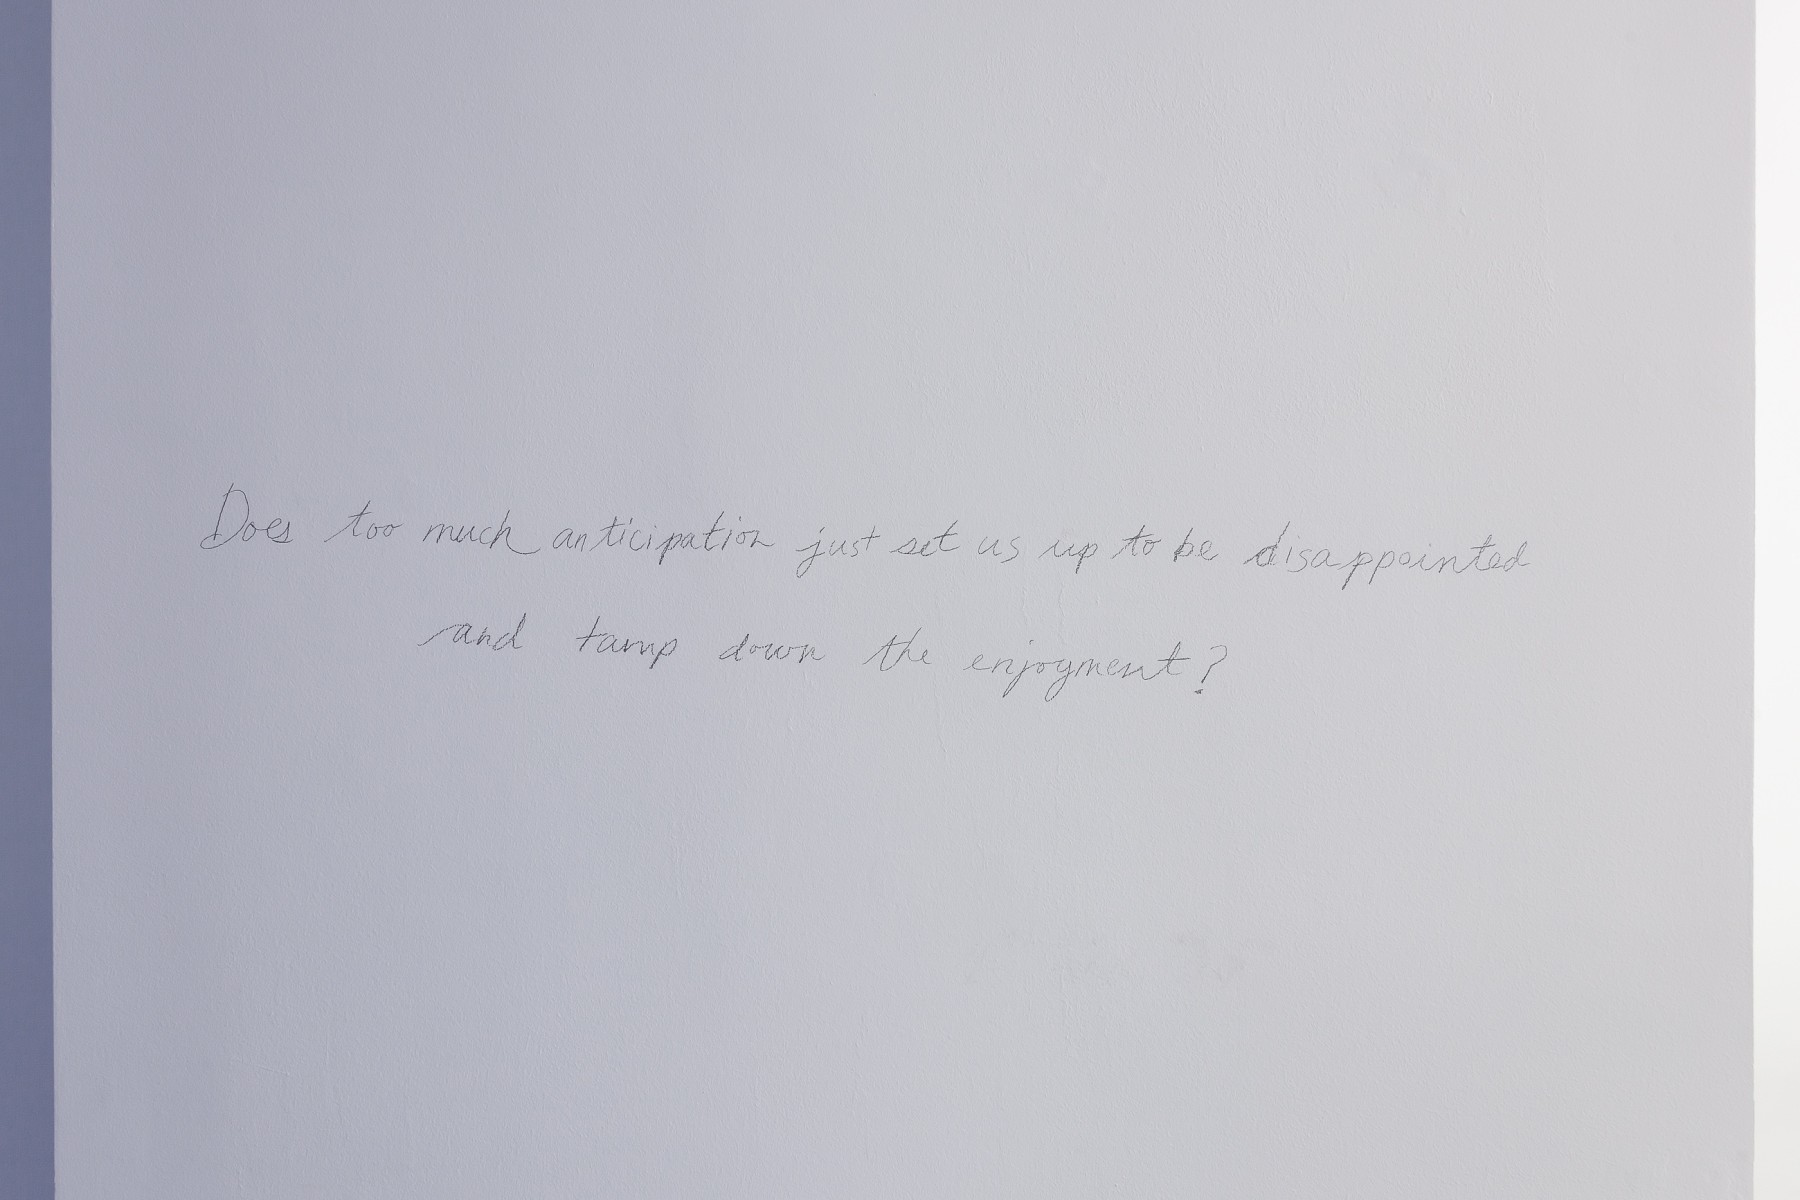 Does too much anticipation just set us up to be disappointed
and tamp down the enjoyment?